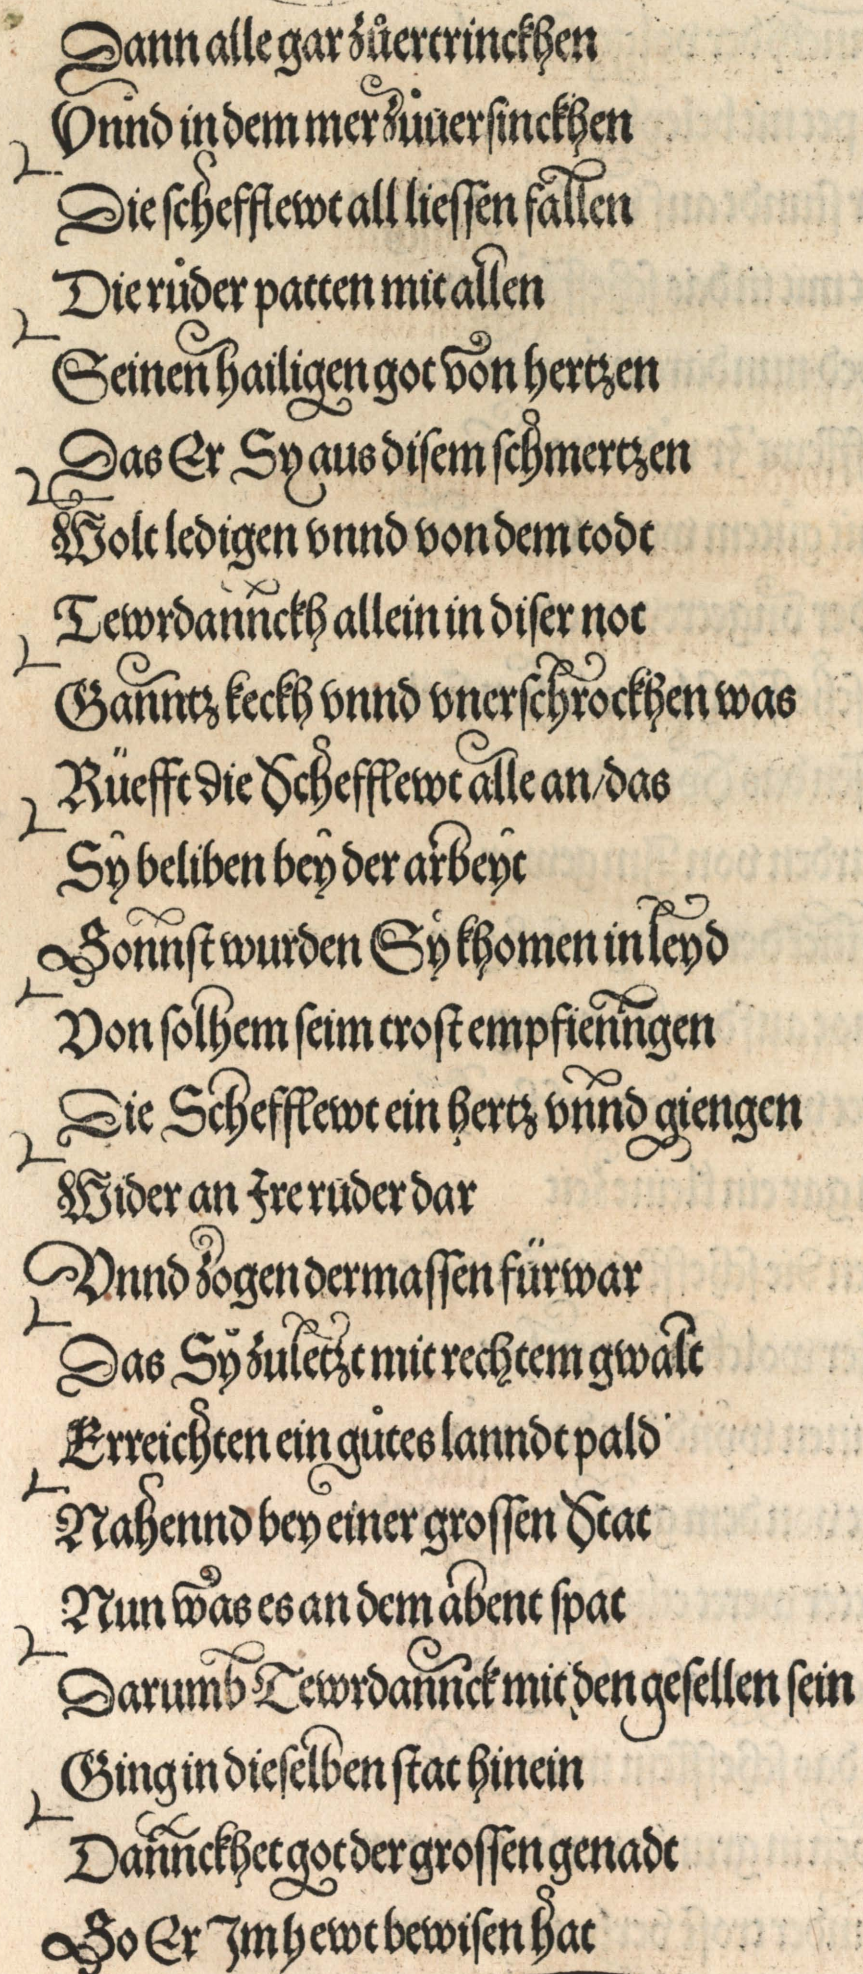 Dann alle gar zůertrinckhen
Vnnd in dem mer zůuersinckhen
Die schefflewt all liessen fallen
Die růder patten mit allen
Seinen hailigen got von hertzen
Das Er Sy aus disem schmertzen
Wolt ledigen vnnd von dem todt
Tewrdannckh allein in diser not
Ganntz keckh vnnd vnerschrockhen was
Rüefft die Schefflewt alle an/das
Sy beliben bey der arbeyt
Sonnst wurden Sy khomen in leyd
Von solhem seim trost empfienngen
Die Schefflewt ein hertz vnnd giengen
Wider an Jre ruder dar
Vnnd zogen dermassen fürwar
Das Sy zuletzt mit rechtem gwalt
Erreichten ein gůtes lanndt pald
Nahennd bey einer grossen Stat
Nun was es an dem abent spat
Darumb Tewrdannck mit den gesellen sein
Ging in dieselben stat hinein
Dannckhet got der grossen genadt
So Er Jm hewt bewisen hat